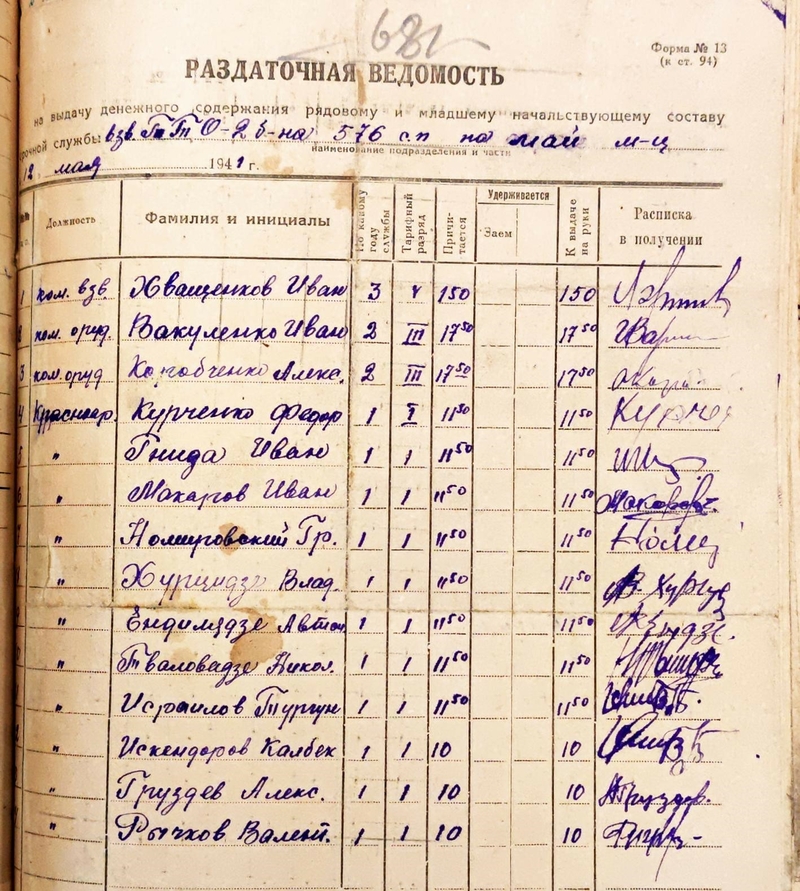 681
Форма № 13
(к ст. 94)
РАЗДАТОЧНАЯ ВЕДОМОСТЬ
на выдачу денежного содержания рядовому и младшему начальствующему составу
срочной службы взв. ПТО-2 б-на 576 с.п на май м-ц
наименование подразделения и части
12 мая 1941 г.
Должность Фамилия и инициалы По какому году службы Тарифный разряд Причитается Удерживается Заем К выдаче на руки Расписка в получении
1 ком. взв. Хващенков Иван 3 V 150 150
2 ком. оруд. Вакуленко Иван 2 III 17 50 17 50
3 ком. оруд Коробченко Алекс. 2 III 17 50 17 50
4 Красноар. Курченко Федор 1 I 11 50 11 50
5 " Гнида Иван 1 1 11 50 11 50
6 " Макаров Иван 1 1 11 50 11 50
7 " Гр. 1 1 11 50 11 50
" Хурцидзе Влад. 1 1 11 50 11 50 В. Хурцид
" Ендимдзе Автон 1 1 11 50 11 50
" Тваловадзе Никол. 1 1 11 50 11 50
" Исраилов Тургун 1 1 11 50 11 50
" Искендоров Калбек 1 1 10 10
" Груздев Алекс. 1 1 10 10 А Груздев.
" Рычков Валент. 1 1 10 10